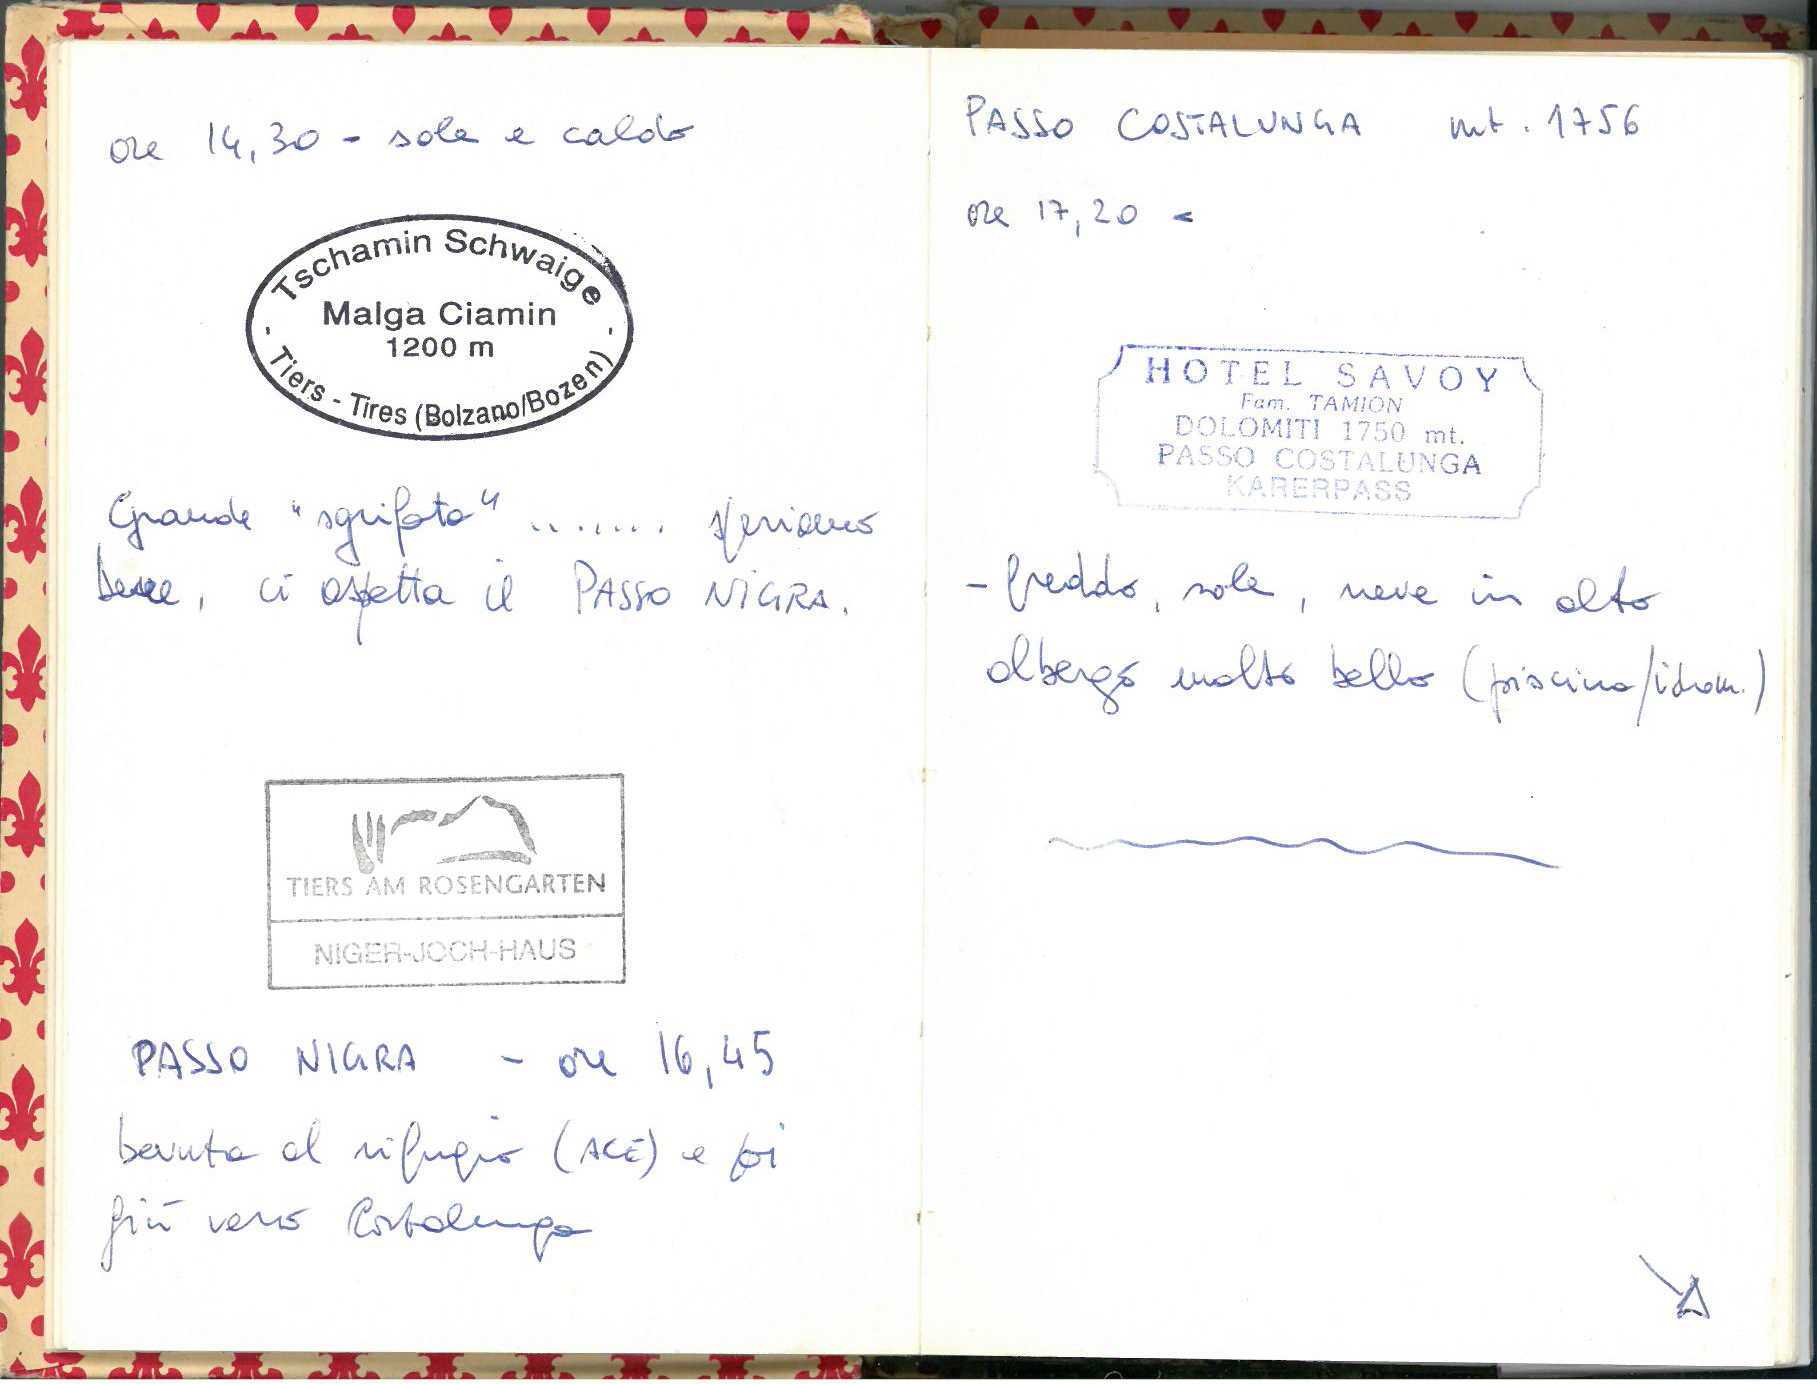 ore 14,30 - sole e caldo
Tschamin Schwaige
Malga Ciamin
1200 m
- Tiers - Tires (Bolzano/Bozen) -
Grande "sgrifata" ........ speriamo
bene, ci aspetta il PASSO NIGRA.
TIERS AM ROSENGARTEN
NIGER-JOCH-HAUS
PASSO NIGRA - ore 16,45
bevuta al rifugio (ACE) e poi
giù verso Costalunga
PASSO COSTALUNGA mt. 1756
ore 17,20 -
HOTEL SAVOY
Fam. TAMION
DOLOMITI 1750 mt.
PASSO COSTALUNGA
KARERPASS
- freddo, sole, neve in alto
albergo molto bello (piscina/idrom.)